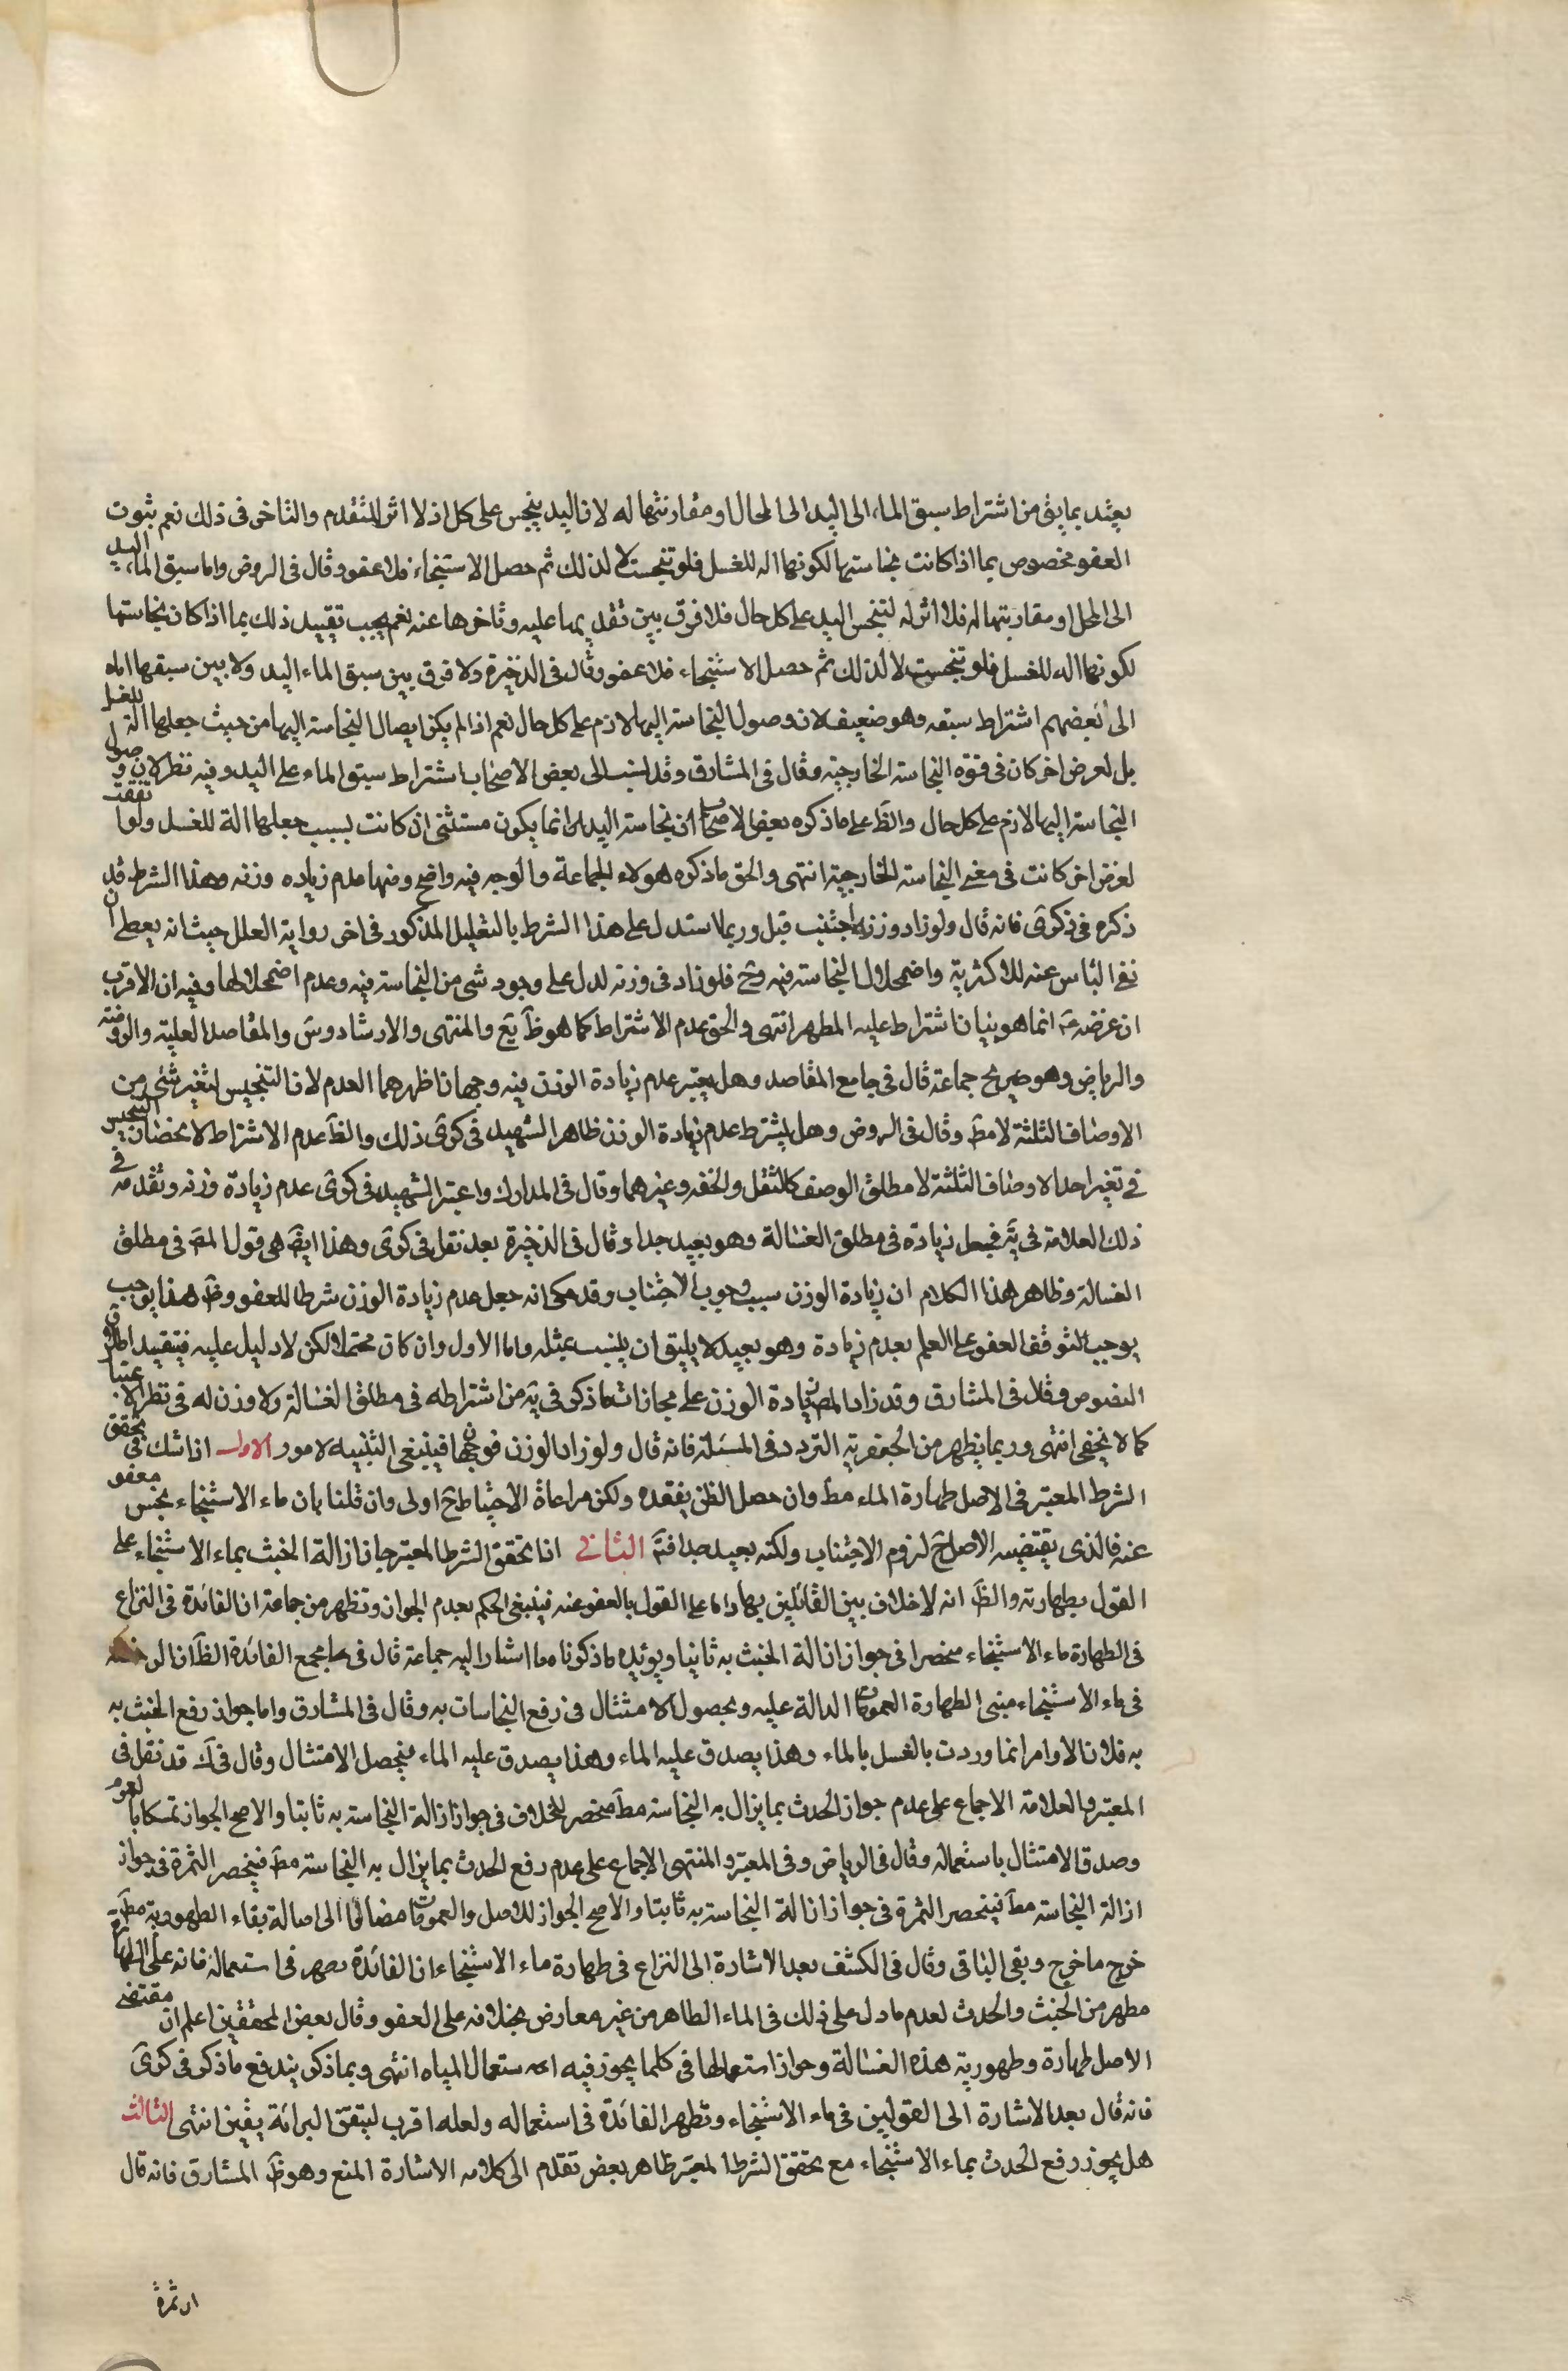 يعتد بما يق من اشتراط سبق الماء الى اليد الى المحال او مقارنتها له لان اليد ينجس على كل اذ لا اثر للتقدم والتاخر فى ذلك نعم ثبوت
العفو مخصوص بما اذا كانت نجاستها لكونها اله للغسل فلو تنجست لا لذلك ثم حصل الاستنجاء فلا عفو وقال فى الروض واما سبق الماء اليد
الى المحل او مقارنتها له فلا اثر له لتنجس اليد على كل حال فلا فرق بين تقديمها عليه وتاخرها عنه نعم يجب تقييد ذلك بما اذا كان نجاستها
لكونها اله للغسل فلو تنجست لا لذلك ثم حصل الاستنجاء فلا عفو وقال فى الذخيرة ولا فرق بين سبق الماء اليد ولا بين سبقها اياه
الى بعضهم اشتراط سبقه وهو ضعيف لان وصول النجاسة اليها لازم على كل حال نعم اذا لم يكن ايصال النجاسة اليها من حيث جعلها الة للغسل
بل لعرض اخر كان فى قوة النجاسة الخارجية وقال فى المشارق وقد نسب الى بعض الاصحاب اشتراط سبق الماء على اليد وفيه نظر لان وصول
النجاسة اليها لازم على كل حال والظ على ما ذكره بعض الاصحاب ان نجاسة اليد انما يكون مستثنى ان كانت بسبب جعلها الة للغسل ولو اتفقت
لغرض اخر كانت فى معنى النجاسة الخارجية انتهى والحق ما ذكره هولاء الجماعة والوجه فيه واضح ومنها عدم زياده وزنه وهذا الشرط قد
ذكره فى ذكرى فانه قال ولو زاد وزنه اجتنب قيل وربما استدل على هذا الشرط بالتعليل المذكور فى اخر رواية العلل حيث انه يعطى ان
نفى الباس عنه للاكثرية واضمحلال النجاسة فيه وح فلو زاد فى وزنه لدل على وجود شى من النجاسة فيه وعدم اضمحلالها وفيه ان الاقرب
ان غرضه ع انما هو بيان اشتراط عليه المطهر انتهى والحق عدم الاشتراط كما هو ظ يع والمنتهى والارشاد وس والمقاصد العلية والروضة
والرياض وهو صريح جماعة قال فى جامع المقاصد وهل يعتبر عدم زيادة الوزن فيه وجهان اظهرهما العدم لان التنجيس لتغير شئ من
الاوصاف الثلثة لا مط وقال فى الروض وهل يشترط عدم زيادة الوزن ظاهر الشهيد فى كرى ذلك والظ عدم الاشتراط لانحصار التنجيس
فى تغير احد الاوصاف الثلثة لا مطلق الوصف كالثقل والخفه وغيرهما وقال فى المدارك واعتبر الشهيد فى كرى عدم زيادة وزنه وتقدمه فى
ذلك العلامة فى ية فجعل زيادة فى مطلق الغسالة وهو بعيد جدا وقال فى الذخيرة بعد نقل فى كرى وهذا ايض هى قول المص فى مطلق
الغسالة وظاهر هذا الكلام ان زيادة الوزن سبب وجوب الاجتناب وقد حكى انه جعل عدم زيادة الوزن شرطا للعفو وظ هذا يوجب
يوجب التوقف العفو على العلم بعدم زيادة وهو بعيد لا يليق ان ينسب بمثله واما الاول وان كان محتملا لكن لا دليل عليه فيتقيد اطلاق
النصوص وقال فى المشارق وقد زاد المص زيادة الوزن على مجازات ما ذكر فى ية من اشتراطه فى مطلق الغسالة ولا وزن له فى نظر الاعتبار
كما لا يخفى انتهى وربما يظهر من الجعفرية التردد فى المسئلة فانه قال ولو زاد الوزن فوجهان فينبغى التنبيه لامور الاول اذا شك فى تحقق
الشرط المعتبر فى الاصل طهارة الماء مط وان حصل الظن بفقده ولكن مراعاة الاحتياط ح اولى وان قلنا بان ماء الاستنجاء نجس معفو
عنه فالذى يقتضيه الاصل ح لزوم الاجتناب ولكنه بعيد جدا فتم الثانى اذا تحقق الشرط المعتبر جاز ازالة الخبث بماء الاستنجاء على
القول بطهارته والظ انه لا خلاف بين القائلين بها واما على القول بالعفو عنه فينبغى الحكم بعدم الجواز وتظهر من جماعة ان الفائدة فى النزاع
فى الطهارة ماء الاستنجاء منحصرا فى جواز ازالة الخبث به ثانيا ويؤيده ما ذكرناه مما اشار اليه جماعة قال فى مجمع الفائدة الظ ان الرخصة
فى ماء الاستنجاء مبنى الطهارة العمومات الدالة عليه وبحصول الامتثال فى رفع النجاسات به وقال فى المشارق واما جواز رفع الخبث به
به فلان الاوامر انما وردت بالغسل بالماء وهذا يصدق عليه الماء وهذا يصدق عليه الماء فيحصل الامتثال وقال فى ك قد نقل فى
المعتبر والعلامة الاجماع على عدم جواز الحدث بما يزال به النجاسة مط منحصر للخلاف فى جواز ازالة النجاسة به ثابتا والاصح الجواز تمسكا بالعموم
وصدق الامتثال باستعماله وقال فى الرياض وفى المعتبر والمنتهى الاجماع على عدم رفع الحدث بما يزال به النجاسة مط فينحصر الثمرة فى جواز
ازالة النجاسة مط فينحصر الثمرة فى جواز ازالة النجاسة به ثابتا والاصح الجواز للاصل والعمومات مضافا الى اصالة بقاء الطهورية مط
خرج ما خرج وبقى الباقى وقال فى الكشف بعد الاشارة الى النزاع فى طهارة ماء الاستنجاء ان الفائدة يظهر فى استعماله فانه على الطهارة
مطهر من الخبث والحدث لعدم ما دل على ذلك فى الماء الطاهر من غير معارض بخلافه على العفو وقال بعض المحققين اعلم ان مقتضى
الاصل طهارة وطهورية هذه الغسالة وجواز استعمالها فى كلما يجوز فيه استعمال المياه انتهى وبما ذكر يندفع ما ذكر فى كرى
فانه قال بعد الاشارة الى القولين فى ماء الاستنجاء وتظهر الفائدة فى استعماله ولعله اقرب لتيقن البرائة بيقين انتهى الثالث
هل يجوز رفع الحدث بماء الاستنجاء مع تحقق الشرط المعتبر ظاهر بعض تقدم الى كلامه الاشارة المنع وهو ظ المشارق فانه قال
ان ثمرة